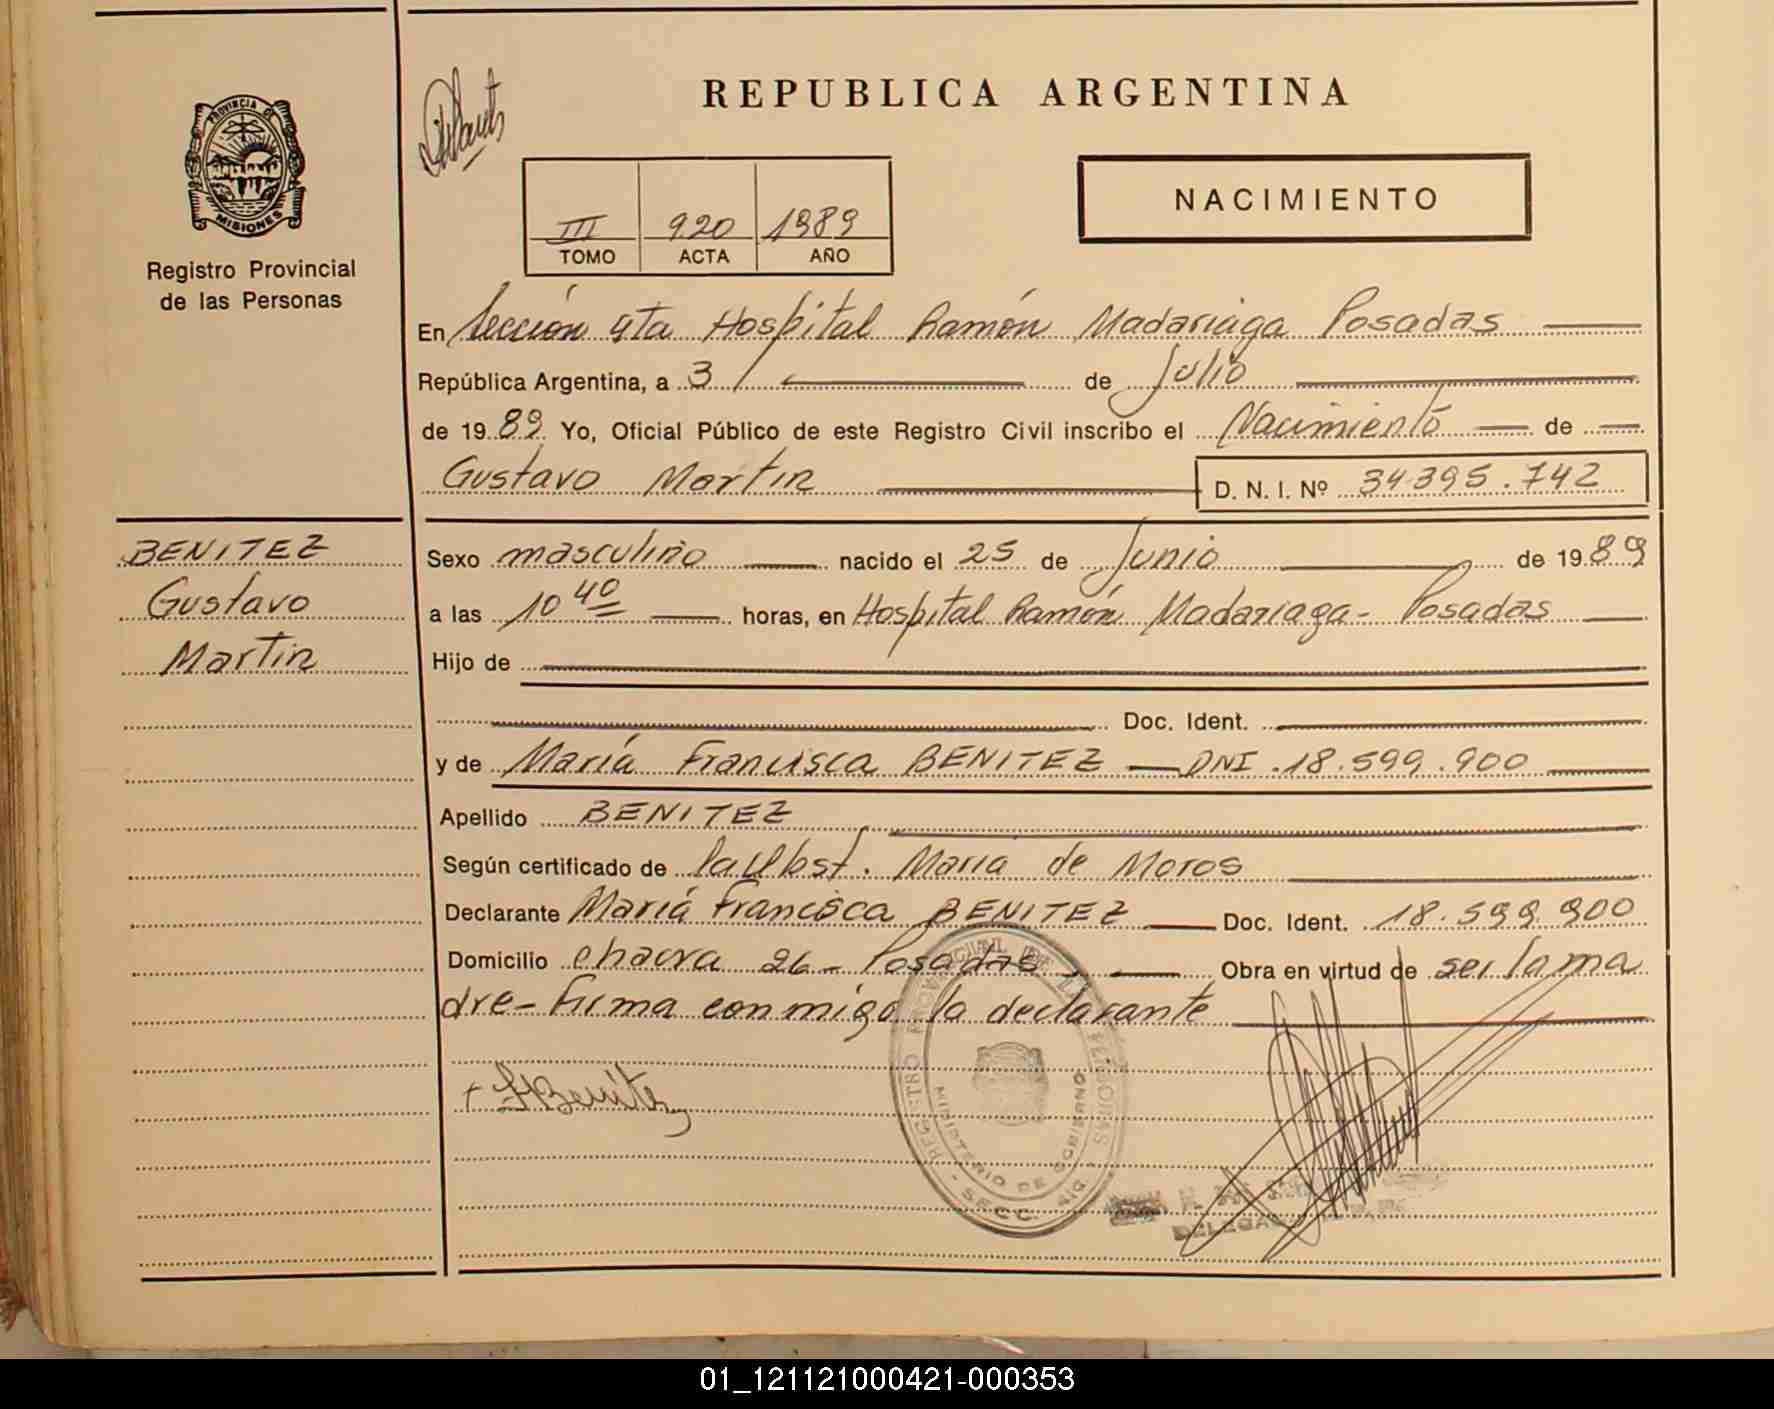 PROVINCIA DE
MISIONES
Registro Provincial
de las Personas
REPUBLICA ARGENTINA
NACIMIENTO
III 920 1989
TOMO ACTA AÑO
En Sección 4ta Hospital Ramón Madariaga Posadas
República Argentina, a 3 de Julio
de 1989 Yo, Oficial Público de este Registro Civil inscribo el Nacimiento de
Gustavo Martin D. N. I. Nº 34395.742
BENITEZ
Gustavo
Martin
Sexo masculino nacido el 25 de Junio de 1989
a las 10 40 horas, en Hospital Ramón Madariaga - Posadas
Hijo de
Doc. Ident.
y de María Francisca BENITEZ — DNI . 18.599.900
Apellido BENITEZ
Según certificado de la Obst. Maria de Moros
Declarante María Francisca BENITEZ Doc. Ident. 18.599.900
Domicilio chacra 26 - Posadas Obra en virtud de ser la ma
dre - Firma conmigo la declarante
Benitez
REGISTRO PROVINCIAL DE LAS PERSONAS
MINISTERIO DE GOBIERNO
- SECC. 4ta -
01_121121000421-000353